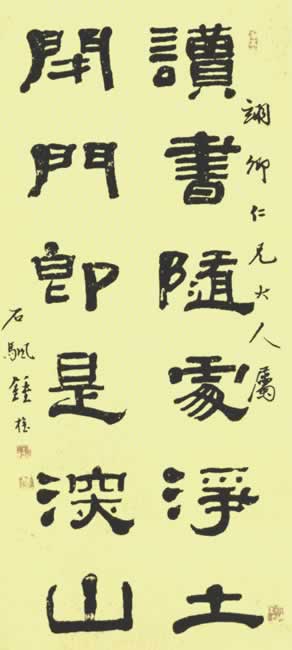 卿仁兄大人屬
讀書隨處淨土
閉門即是深山
石颿鍾